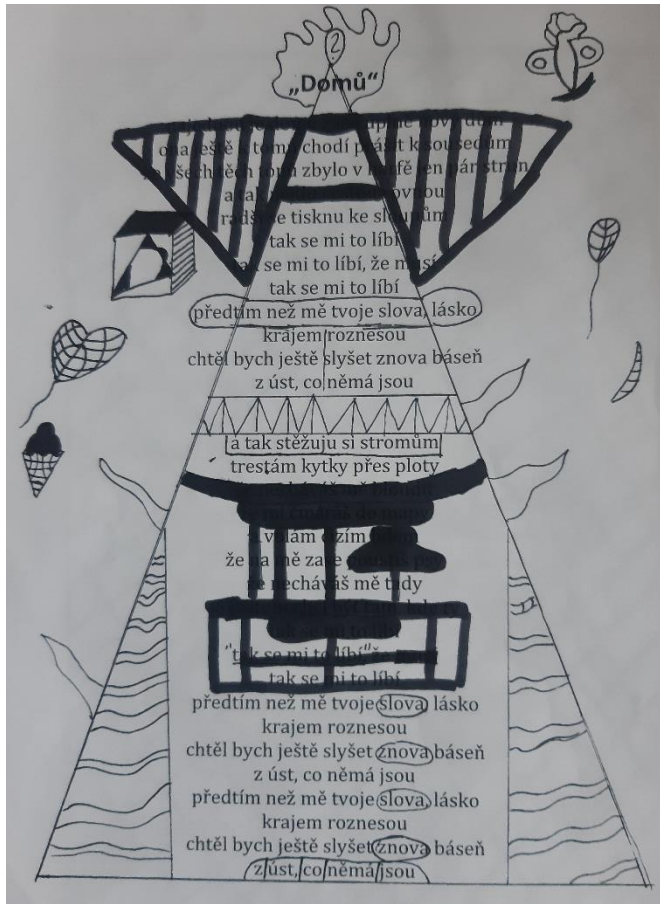 2
„Domů“
ona ještě k tomu chodí prásit k sousedům
všech těch tónů zbylo v harfě jen pár strun
a tak rovnou
radši se tisknu ke sloupům
tak se mi to líbí
tak se mi to líbí, že musí
tak se mi to líbí
předtím než mě tvoje slova, lásko
krajem roznesou
chtěl bych ještě slyšet znova báseň
z úst, co němá jsou
a tak stěžuju si stromům
trestám kytky přes ploty
volám cizím
že na mě zase pouštíš psy
že necháváš mě tady
"tak se mi to líbí" že
tak se mi to líbí
předtím než mě tvoje slova, lásko
krajem roznesou
chtěl bych ještě slyšet znova báseň
z úst, co němá jsou
předtím než mě tvoje slova, lásko
krajem roznesou
chtěl bych ještě slyšet znova báseň
z úst, co němá jsou